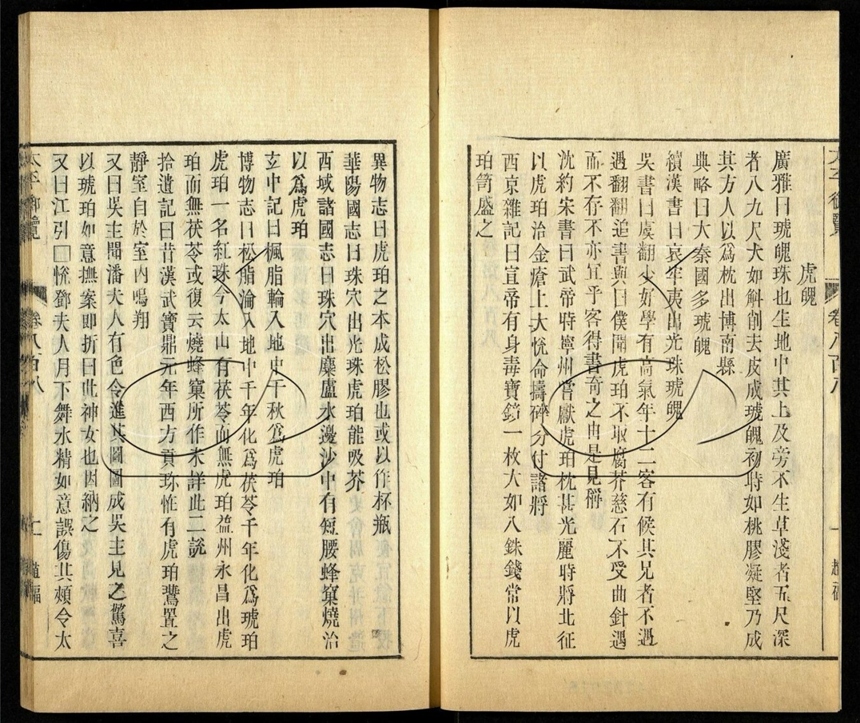 虎魄
廣雅曰琥魄珠也生地中其上及旁不生草淺者五尺深
者八九尺大如斛削去皮成琥魄初時如桃膠凝堅乃成
其方人以爲枕出博南縣
典略曰大秦國多琥魄
續漢書曰哀牢夷出光珠琥魄
吳書曰虞翻少好學有高氣年十二客有候其兄者不過
翻翻追書與曰僕聞虎珀不取腐芥慈石不受曲針過
而不存不亦宜乎客得書奇之由是見稱
沈約宋書曰武帝時寧州嘗獻虎珀枕甚光麗時將北征
以虎珀治金瘡上大恱命擣碎分付諸將
西京雜記曰宣帝有身毒寶鏡一枚大如八銖錢常以虎
珀笥盛之
異物志曰虎珀之本成松膠也或以作杯瓶
華陽國志曰珠穴出光珠虎珀能吸芥
西域諸國志曰珠穴出麋盧水邊沙中有短腰蜂窠燒治
以爲虎珀
玄中記曰楓脂輪入地中千秋爲虎珀
博物志曰松脂淪入地中千年化爲茯苓千年化爲琥珀
虎珀一名紅珠今太山有茯苓而無虎珀益州永昌出虎
珀而無茯苓或復云燒蜂窠所作未詳此二說
拾遺記曰昔漢武寶鼎元年西方貢珍惟有虎珀鷰置之
靜室自於室內鳴翔
又曰吳主聞潘夫人有色令進其圖圖成吳主見之驚喜
以琥珀如意撫案即折曰此神女也因納之
又曰江引□恱鄧夫人月下舞水精如意誤傷其頰令太
太平御覽
卷八百八